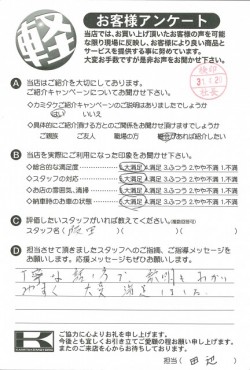 軽
お客様アンケート
当店では、お買い上げ頂いたお客様の声を可能
な限り現場に反映し、お客様により良い商品と
サービスを提供する事に努めています。
大変お手数ですが是非お声をお聞かせ下さい。
検印
31.1.20
社長
A 当店はご紹介を大切にしております。
ご紹介キャンペーンについてお聞かせ下さい。
◇カミタケご紹介キャンペーンのご説明はありましたでしょうか
はい いいえ
◇具体的にご紹介頂ける方とのご関係をお聞かせ願えますか
ご親族 ご友人 職場の方 縁があれば紹介したい
B 当店を実際にご利用になった印象をお聞かせ下さい。
◇総合的な満足度 5.大満足 4.満足 3.ふつう 2.やや不満 1.不満
◇スタッフの対応 5.大満足 4.満足 3.ふつう 2.やや不満 1.不満
◇お店の雰囲気、清掃 5.大満足 4.満足 3.ふつう 2.やや不満 1.不満
◇納車時のお車の状態 5.大満足 4.満足 3.ふつう 2.やや不満 1.不満
C 評価したいスタッフがいれば教えてください。(複数回答可)
スタッフ名(
D 担当させて頂きましたスタッフへのご指摘、ご指導メッセージを
お願いします。応援メッセージもぜひお願いします。
丁寧な
わかり
やすく 大変 満足しました。
ご協力に心よりお礼を申し上げます。
今後とも宜しくお引き立てご愛顧の程お願い申し上げます。
またのご来店を心からお待ちしております。
担当( 田辺 )